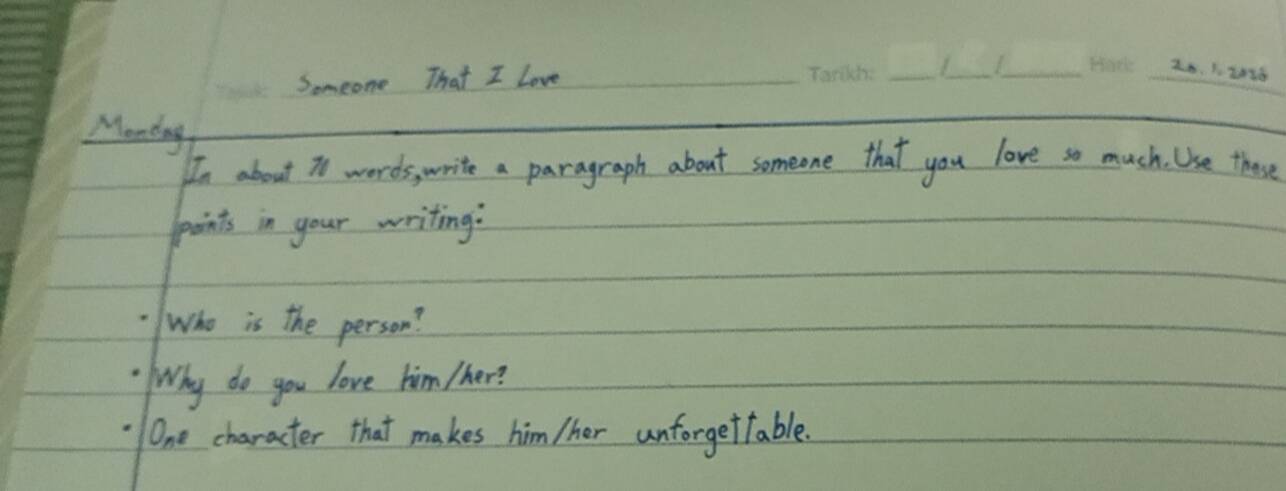 Someone That I Love Tarikh: / / Hari: 20.1.2020
Monday
In about 70 words, write a paragraph about someone that you love so much. Use these
points in your writing:
• Who is the person?
• Why do you love him/her?
• One character that makes him/her unforgettable.